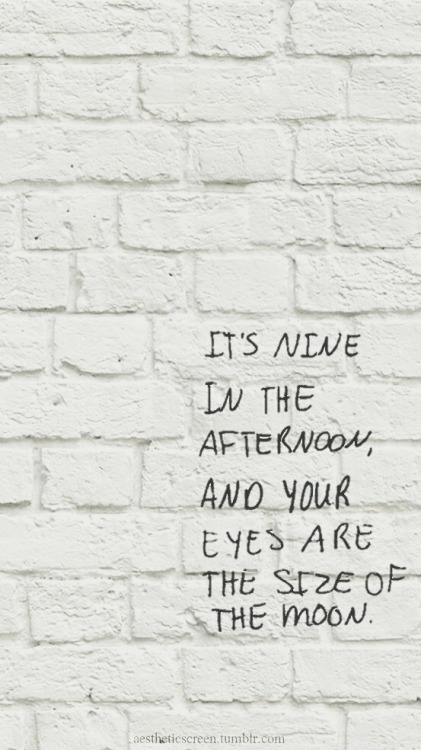 IT'S NINE
IN THE
AFTERNOON,
AND YOUR
EYES ARE
THE SIZE OF
THE MOON.
aestheticscreen.tumblr.com